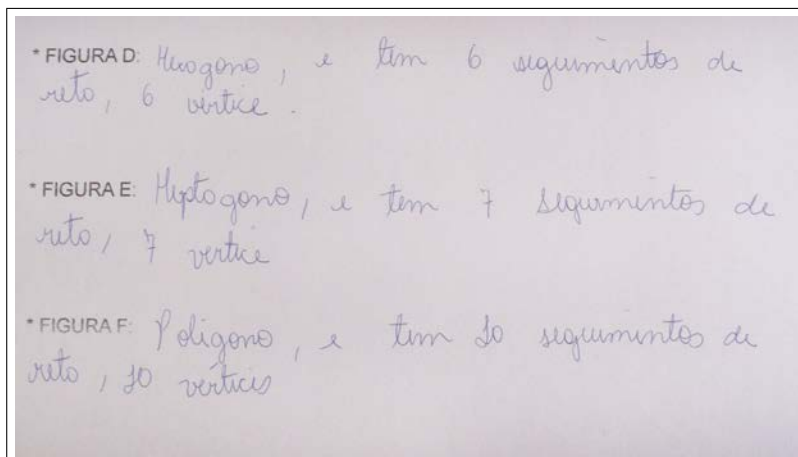 * FIGURA D: Hexogono, e tem 6 seguimentos de
reto, 6 vertice.
* FIGURA E: Heptogono, e tem 7 seguimentos de
reto, 7 vertice
* FIGURA F: Poligono, e tem 10 seguimentos de
reto, 10 vertices